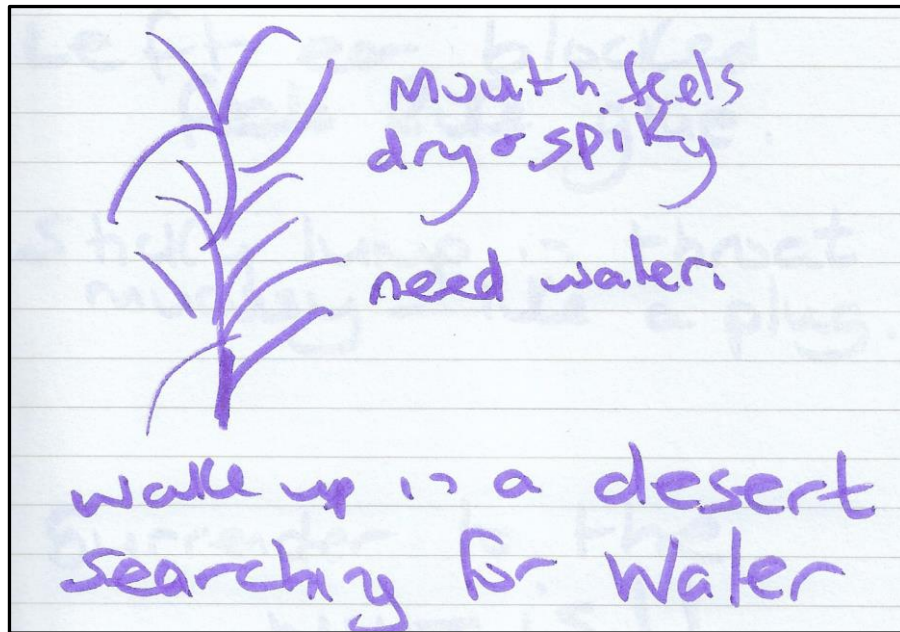 Mouth feels
dry & spiky
need water.
wake up in a desert
searching for Water